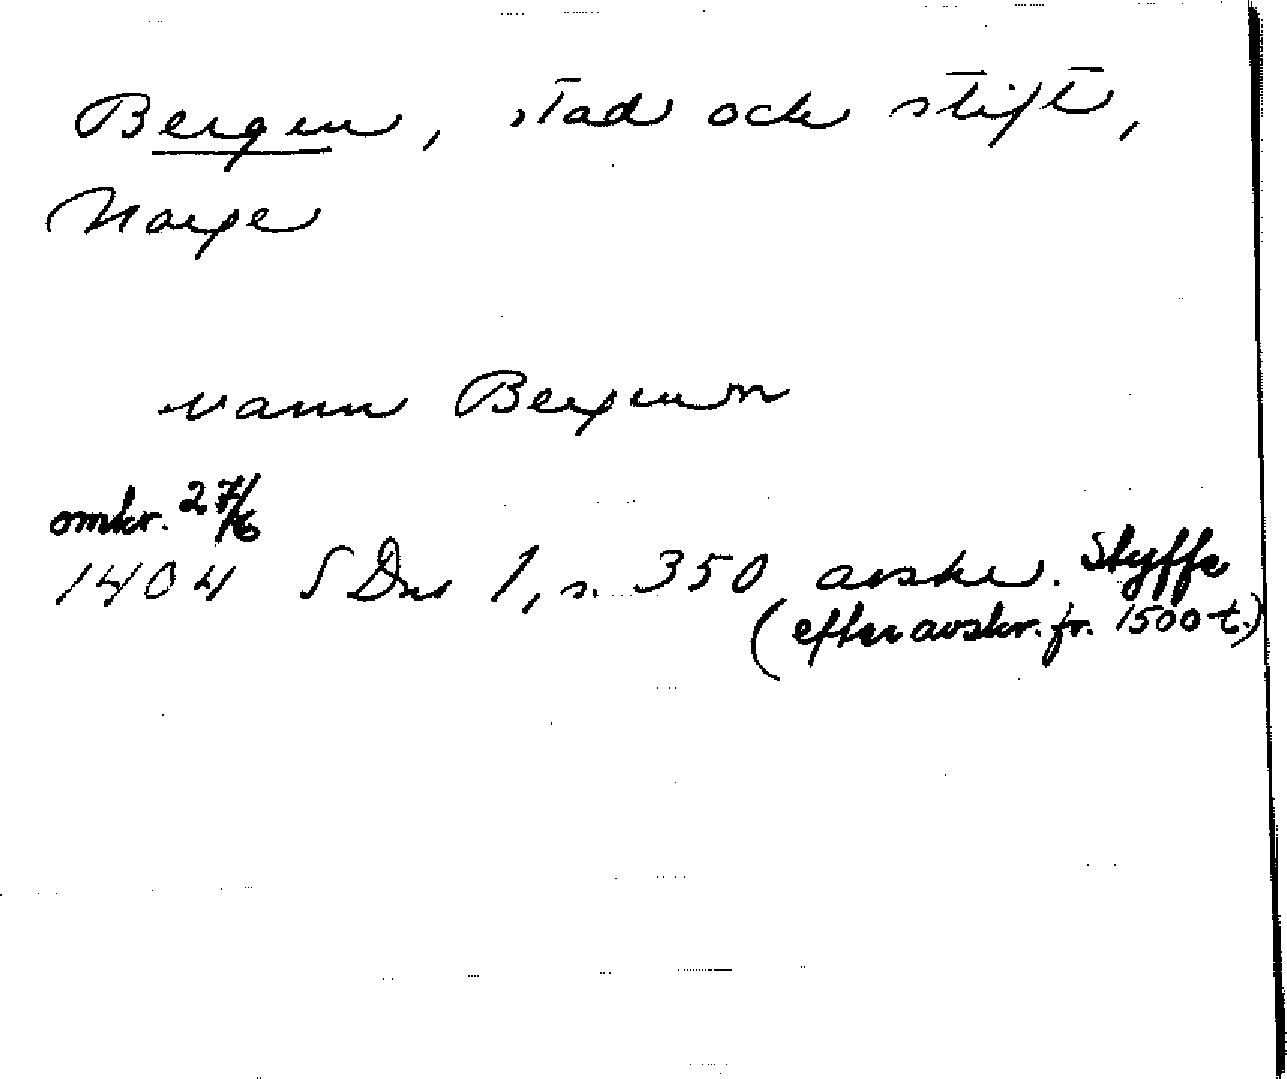 Bergen, stad och stift,
Norge
vann Bergenn
omkr. 27/6
1404 SDns 1, s. 350 avskr. Styffe
(efter avskr. fr. 1500 t.)